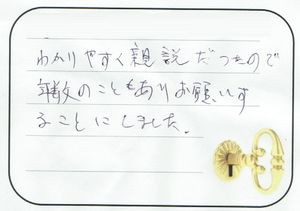 わかりやすく親説だったので
年数のこともありお願いす
ることにしました。